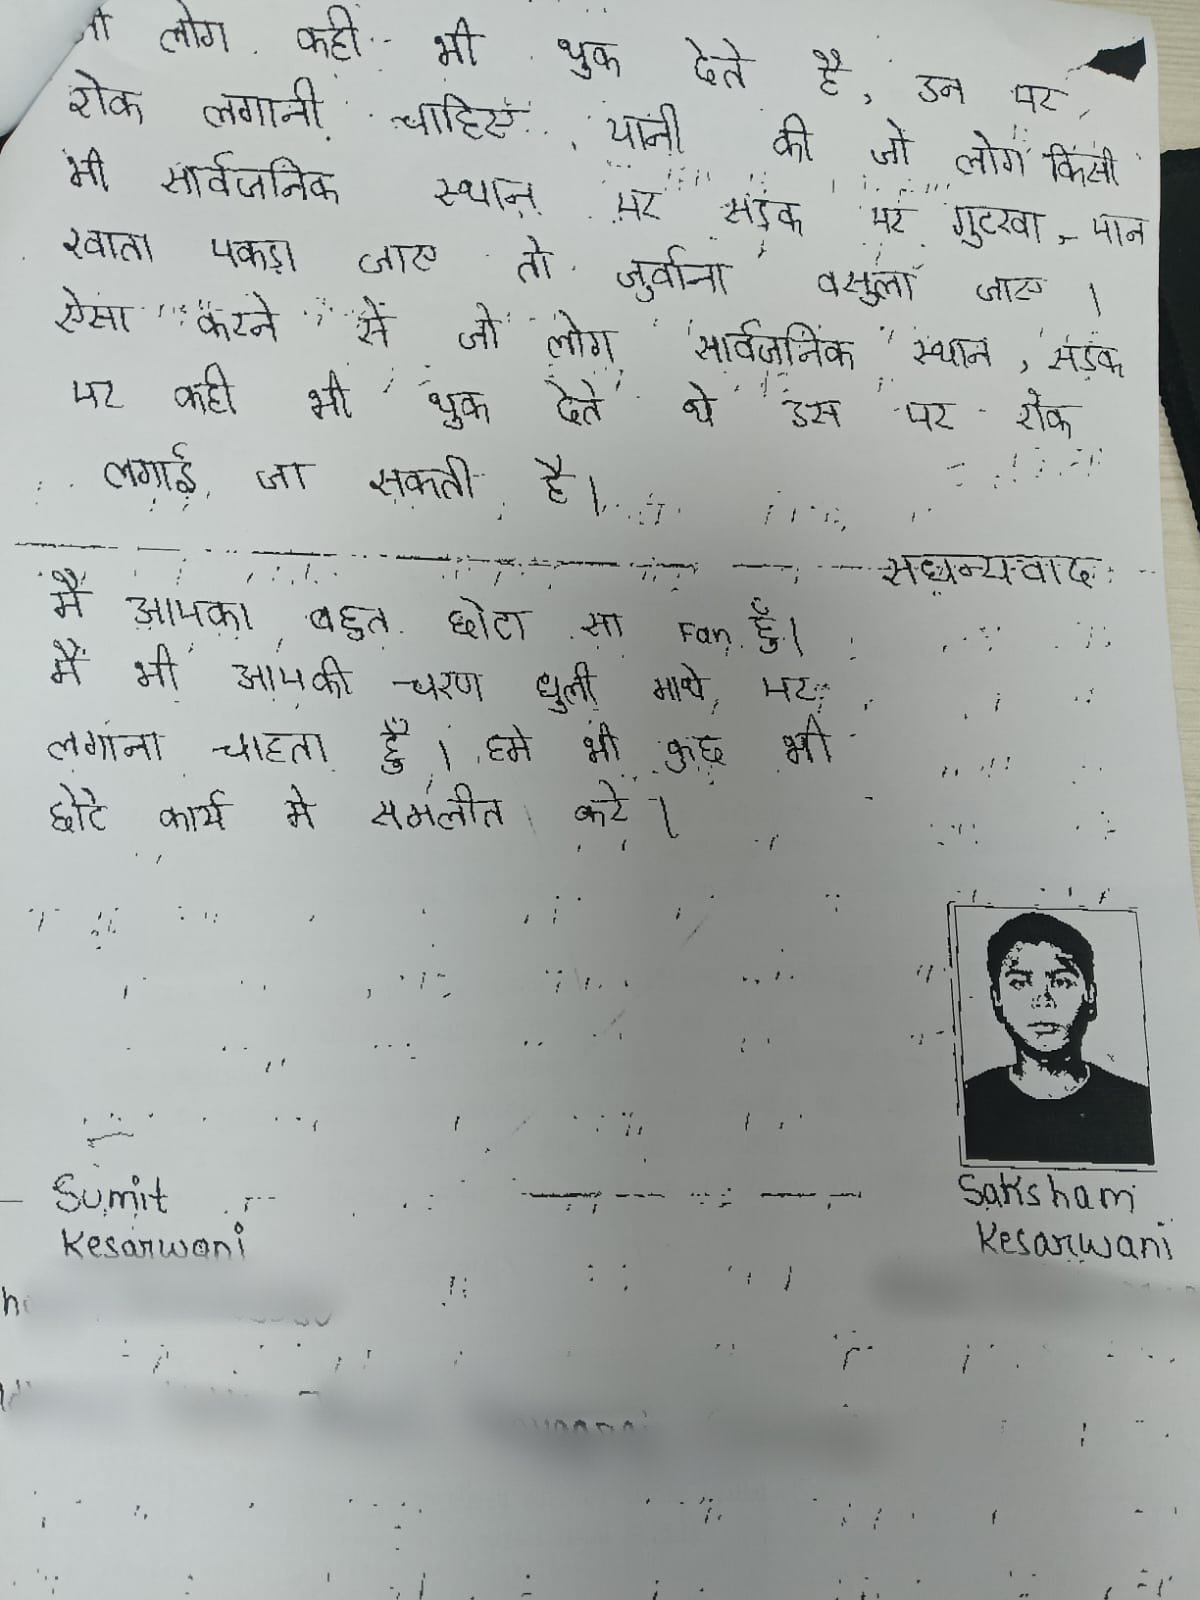 लोग कही भी थुक देते है, उन पर
रोक लगानी चाहिए, यानी की जो लोग किसी
भी सार्वजनिक स्थान पर सड़क पर गुटखा - पान
खाता पकड़ा जाए तो जुर्वाना वसुला जाए ।
ऐसा करने से जो लोग सार्वजनिक स्थान, सड़क
पर कही भी थुक देते थे उस पर रोक
लगाई जा सकती है ।
सधन्यवाद
मैं आपका बहुत छोटा सा Fan हूँ।
मैं भी आपकी चरण धुली माथे पर
लगाना चाहता हूँ । हमे भी कुछ भी
छोटे कार्य मे समलीत करे ।
Sumit
Kesarwani
Saksham
Kesarwani